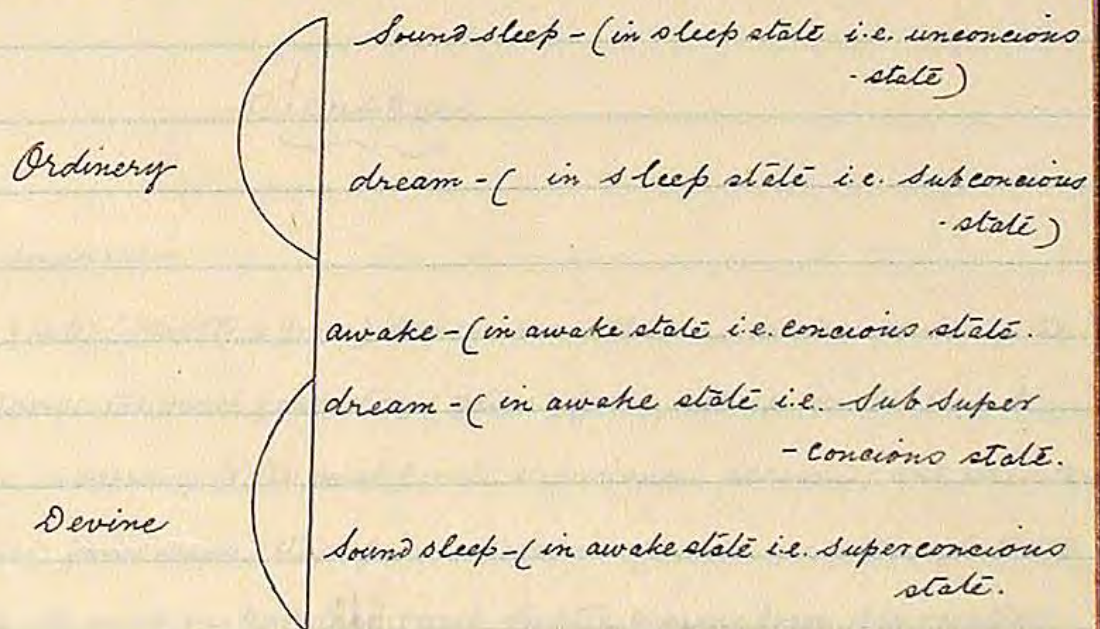 Sound sleep - (in sleep state i.e. unconcious
- state)
Ordinery
dream - ( in sleep state i.e. Subconcious
- state)
awake - (in awake state i.e. concious state.
dream - ( in awake state i.e. Sub Super
- concious state.
Devine
Sound sleep - ( in awake state i.e. superconcious
state.